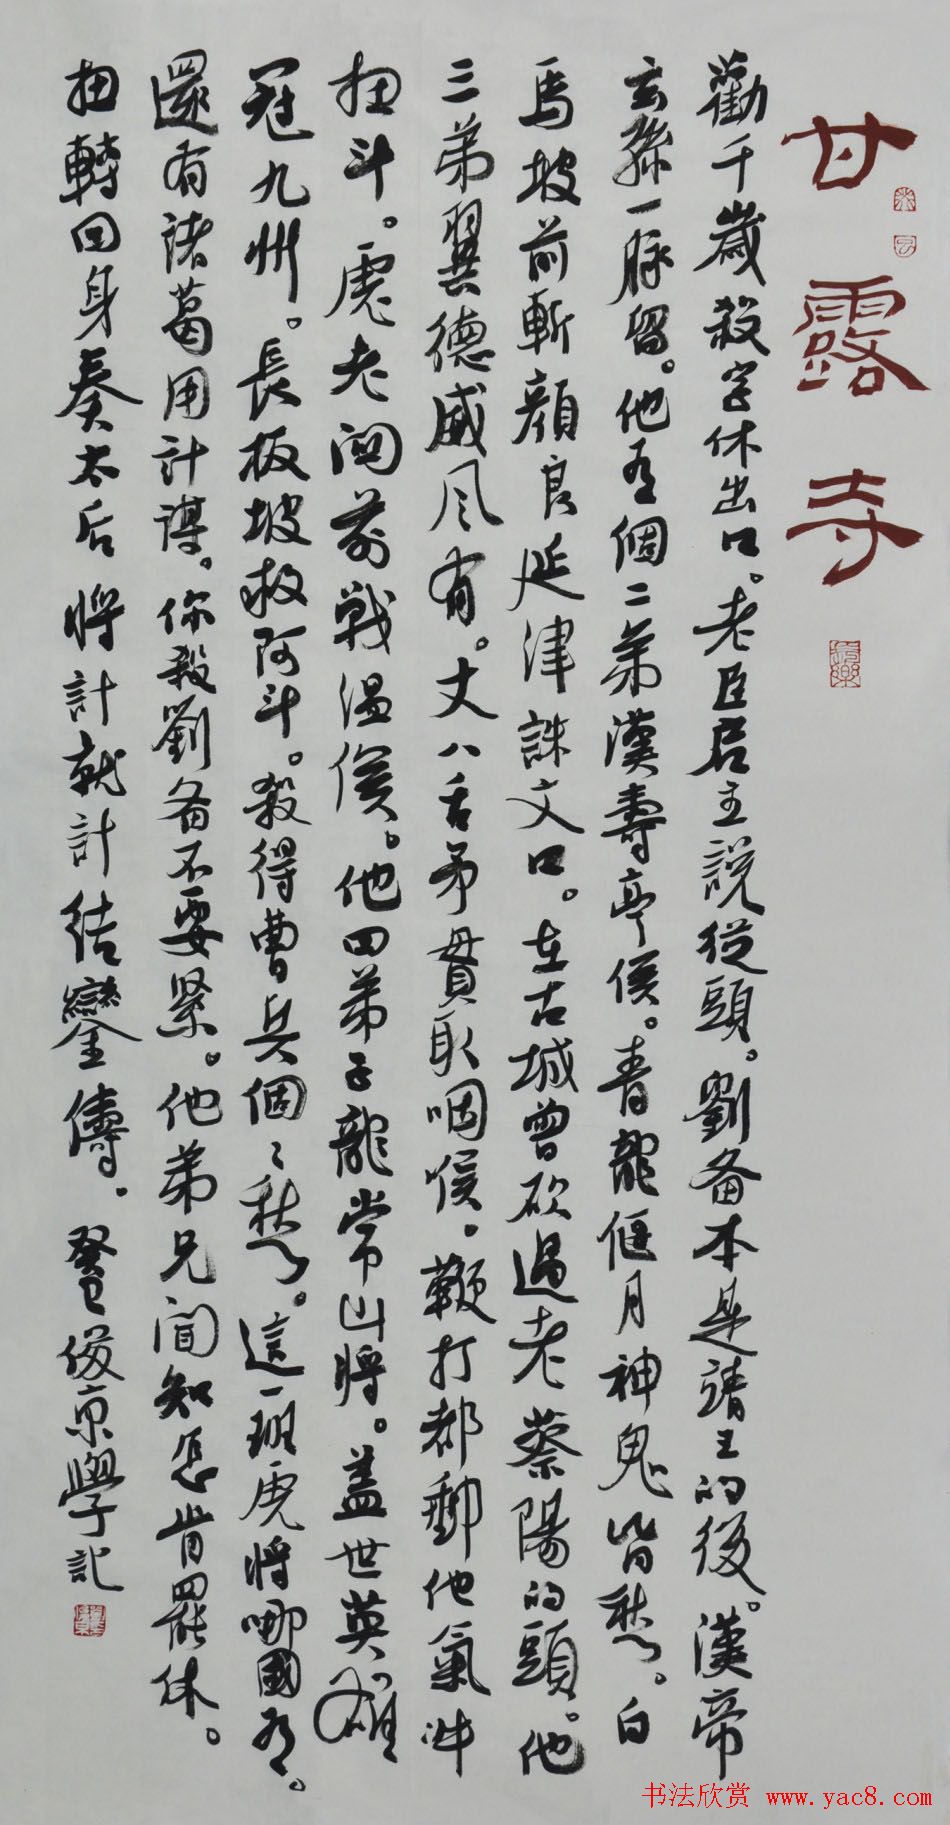 甘露寺
勸千歲殺字休出口。老臣启主說從頭。劉备本是靖王的後。漢帝
玄孫一脉留。他有個二弟漢壽亭侯。青龍偃月神鬼皆愁。白
馬坡前斬顏良延津誅文口。在古城曾砍過老蔡陽的頭。他
三弟翼德威风有。丈八舌矛貫取咽喉。鞭打都郵他氣冲
扭斗。虎老関前戰温侯。他四弟子龍常山將。盖世英雄
冠九州。長板坡救阿斗。殺得曹兵個々愁。這一班虎將哪國有。
還有諸葛用計謀。你殺劉备不要緊。他弟兄聞知怎肯罷休。
扭轉回身奏太后將計就計結鑾儔。癸巳俊京學記
书法欣赏 www.yac8.com